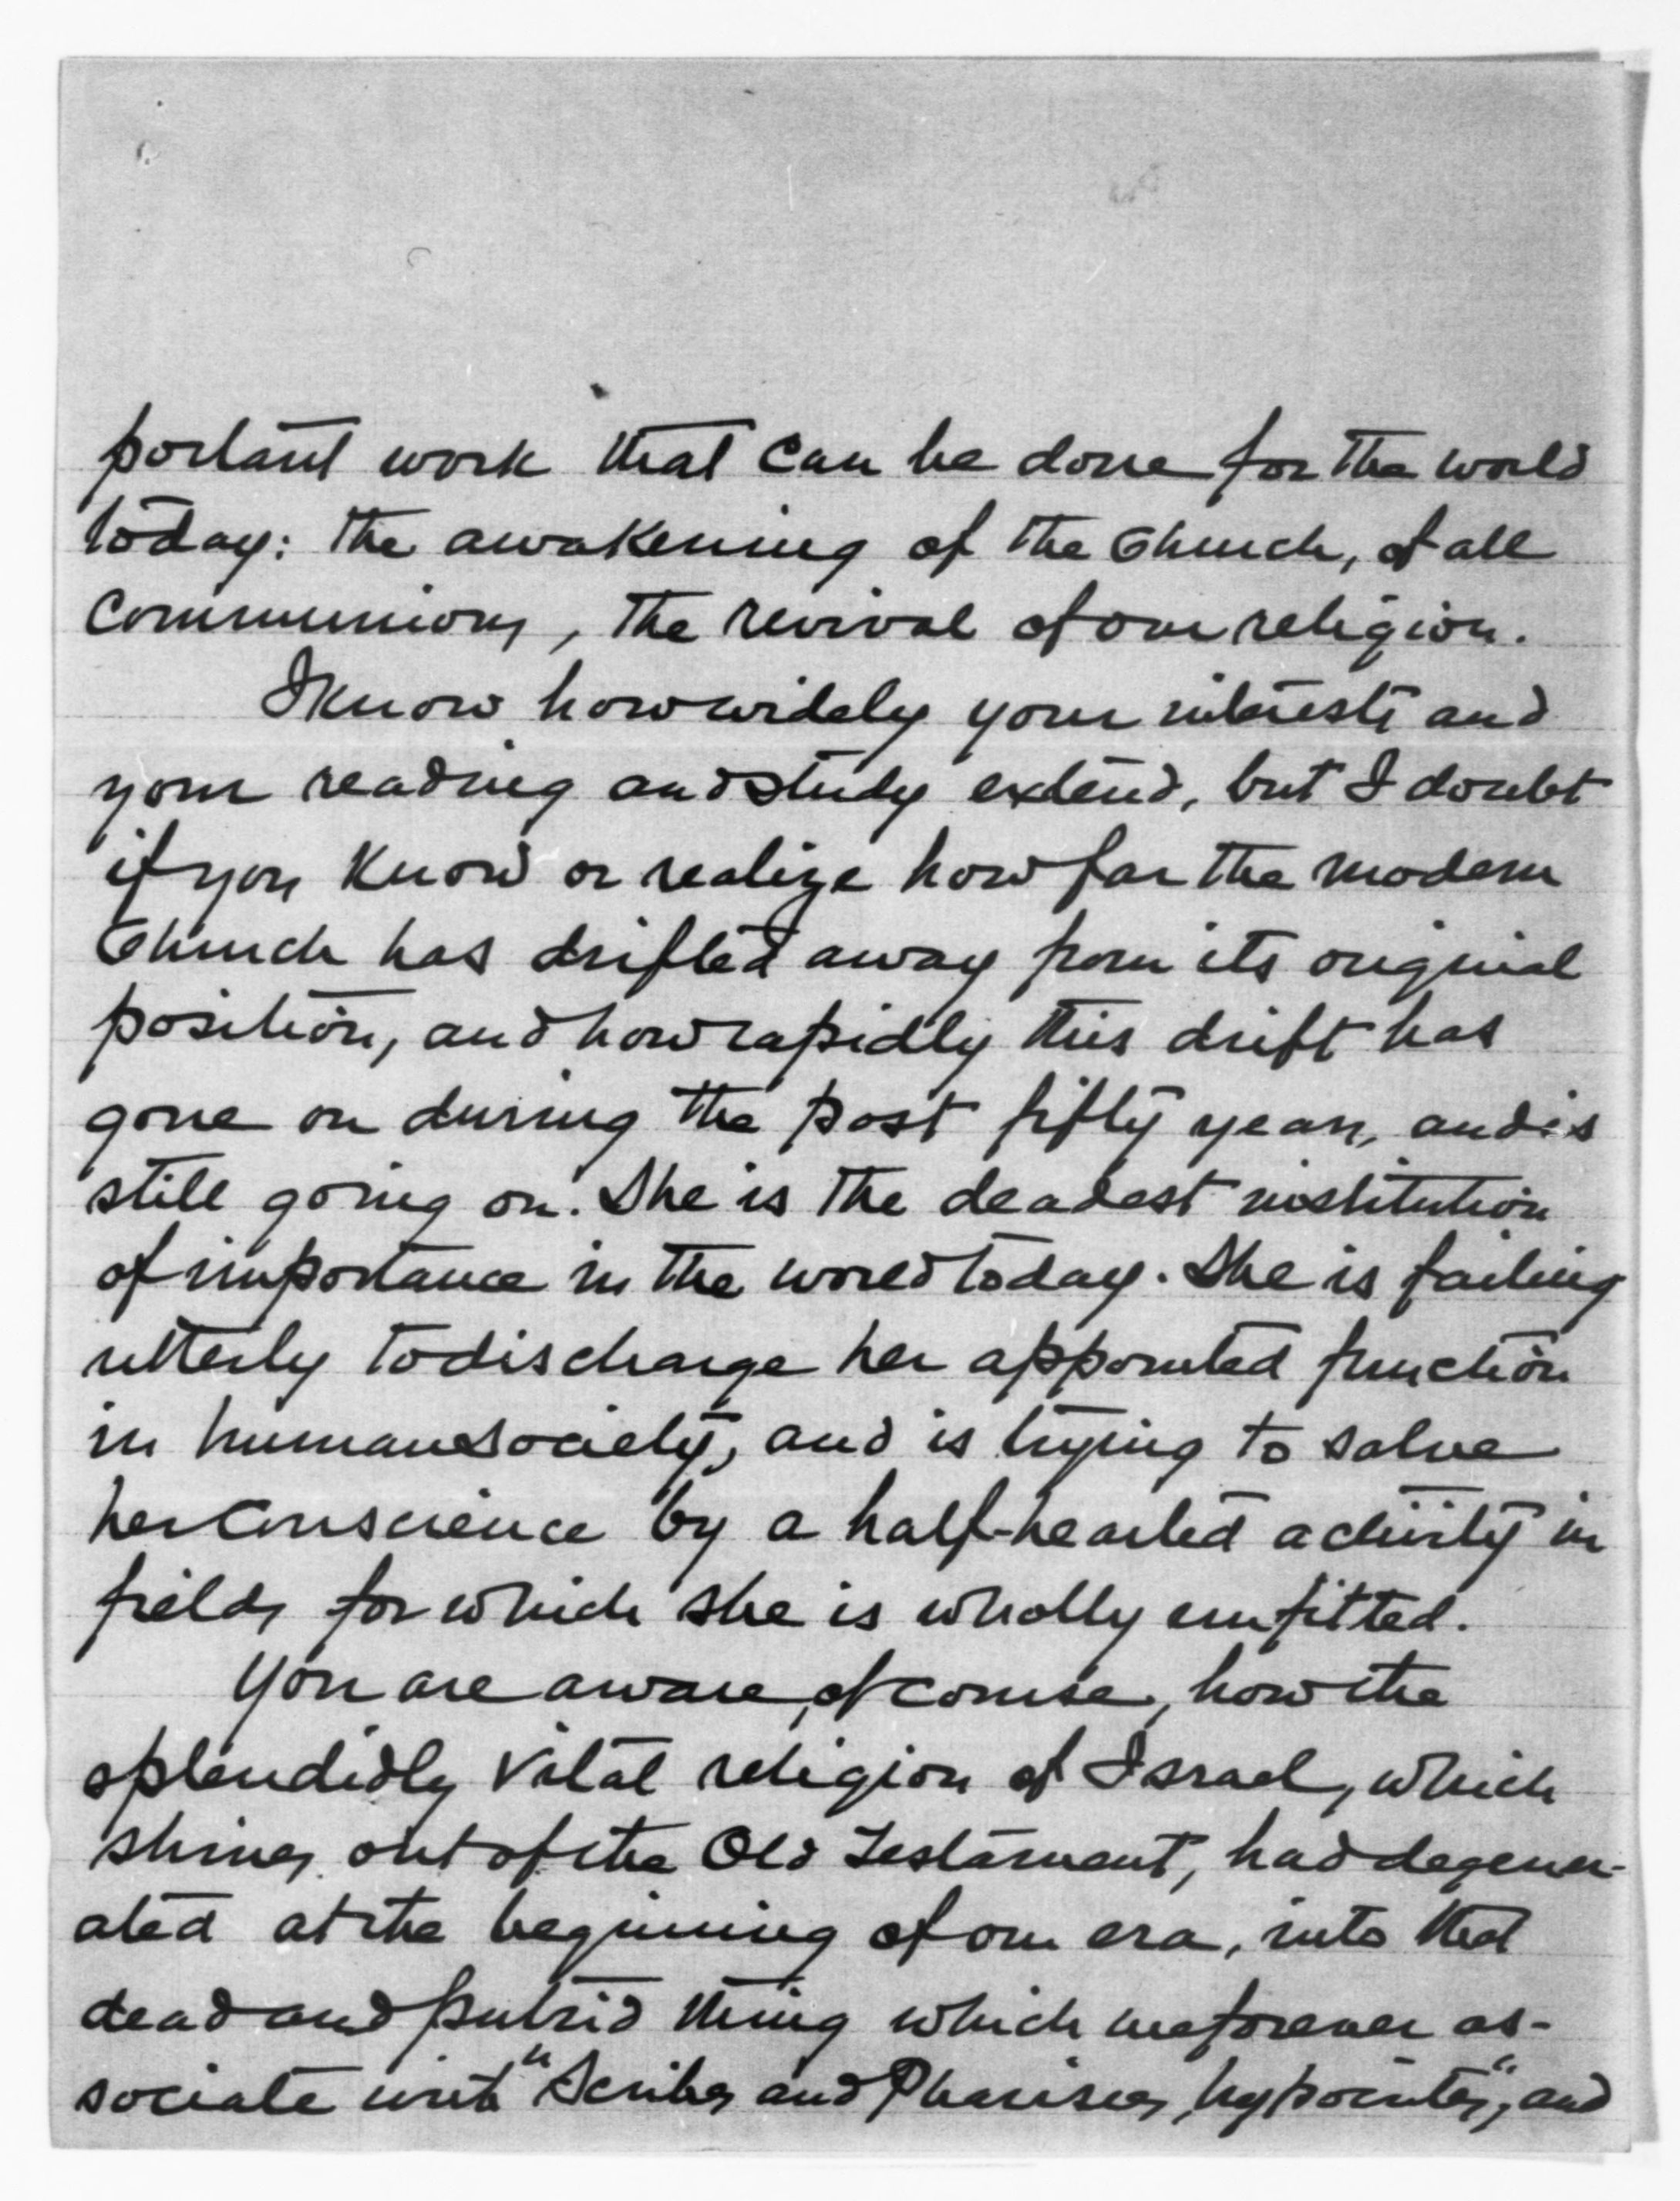 portant work that can be done for the world
today: the awakening of the Church, of all
Communions, the revival of our religion.
I know how widely your interests and
your reading and study extend, but I doubt
if you know or realize how far the modern
Church has drifted away from its original
position, and how rapidly this drift has
gone on during the past fifty years, and is
still going on. She is the deadest institution
of importance in the world today. She is failing
utterly to discharge her appointed function
in human society, and is trying to salve
her conscience by a half-hearted activity in
fields for which she is wholly unfitted.
You are aware, of course, how the
splendidly vital religion of Israel, which
shines out of the Old Testament, had degener-
ated at the beginning of our era, into that
dead and putrid thing which we forever as-
sociate with "Scribes and Pharisees, hypocrites", and